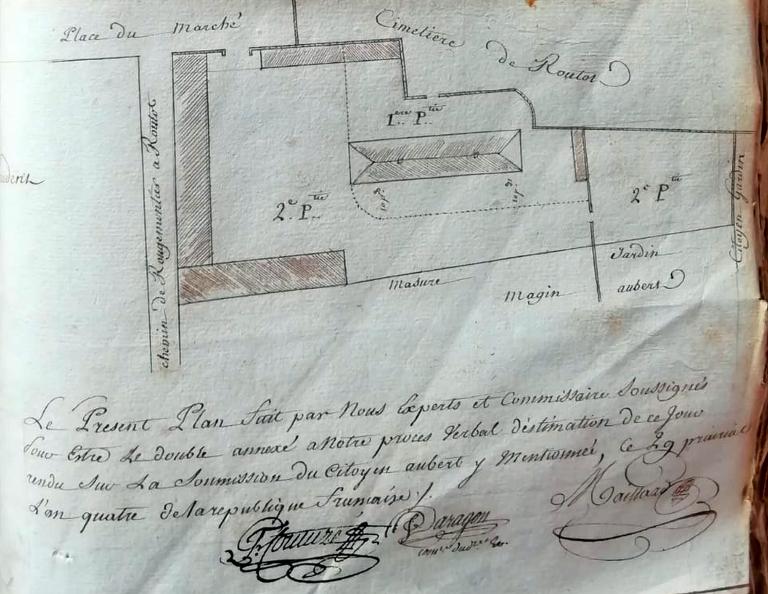 Place du marché
Cimetière de Routot
1.ere P.tie
chemin de Rougemontier a Routot
2.e P.tie
2.e P.tie
10 p.ds
10 p.ds
Citoyen Gardin
Jardin
aubert
Masure
Magin
Le Present Plan fait par Nous Experts et Commissaire Soussignés
Pour Estre Le double annexé a Notre proces Verbal déstimation de ce Jour
rendu Sur La Soumission du Citoyen aubert y Mentionneé, Ce 29 prairial
L'an quatre de la republique francaise /.
Daragon
Maillard